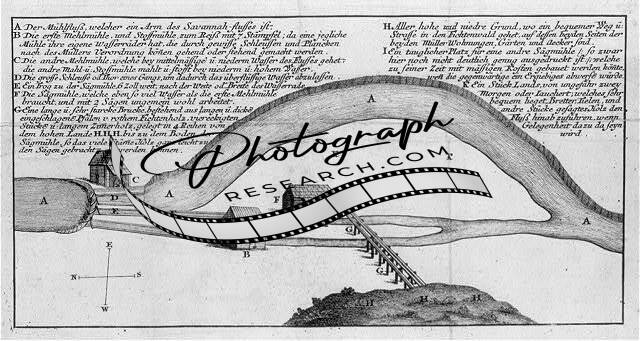 A Der Mühlfluß, welcher ein Arm des Savannah-flusses ist;
B Die erste Mehlmühle, und Stoffmühle, zum Reiß mit 7 Stämpfel; da eine jegliche
Mühle ihre eigene Wasserräder hat, die durch gewisse Schleussen und Plancken
nach des Müllers Verordnung können gehend oder stehend gemacht werden.
C Die andre Mehlmühle, welche bey mittelmässige ü niederm Wasser des Flusses gehet:
die andre Mahl-ü Stoffmühle mahlt ü stofft bey niederm ü hohem Wasser.
D Die grosse Schleusse od Thor eines Gangs, um dadurch das überflüssige Wasser abzulassen
E Ein Trog zu der Sägmühle, 6 Zoll weit, nach der Weite od Breite des Wasserrads
F Die Sägmühle, welche eben so viel Wasser als die erste Mehlmühle
braucht, und mit 2 Sägen ungemein wohl arbeitet.
G Eine lange ü sehr starcke Brücke, bestehend aus langen ü dicken
eingeschlagene Pfälen v. rothem Fichtenholz, viereckigten
Stücke ü langem Zimerholz, gelegt in 4 Reihen von
dem hohen Lande H.H.H. bis zu dem Boden
Sägmühle, so das viele Bäume gantz leicht zu
den Sägen gebracht werden können.
H. Aller hohe und niedre Grund, wo ein bequemer Weg ü
Strasse in den Fichtenwald gehet, auf dessen beyden Seiten der
beyden Müller Wohnungen, Gärten und Aecker sind.
I Ein tauglicher Platz für eine andre Sägmühle (: so zwar
hier noch nicht deutlich genug ausgedruckt ist :) welche
zu seiner Zeit mit mässigen Kosten gebauet werden könte,
weñ die gegenwärtige ein Ergiebiges abwerfe würde.
K Ein Stück Land, von ungefähr zwey
Morgen oder Jauchert; welches sehr
bequem lieget, Bretter, Dielen, und
andre Stücke gesägtes Holz den
Fluß hinab zuführen, wenn
Gelegenheit dazu da seyn
wird.
Photograph
RESEARCH.COM
A
A
A
A
A
B
C
D
E
F
G
G
H
H
H
I
K
E
N
S
W